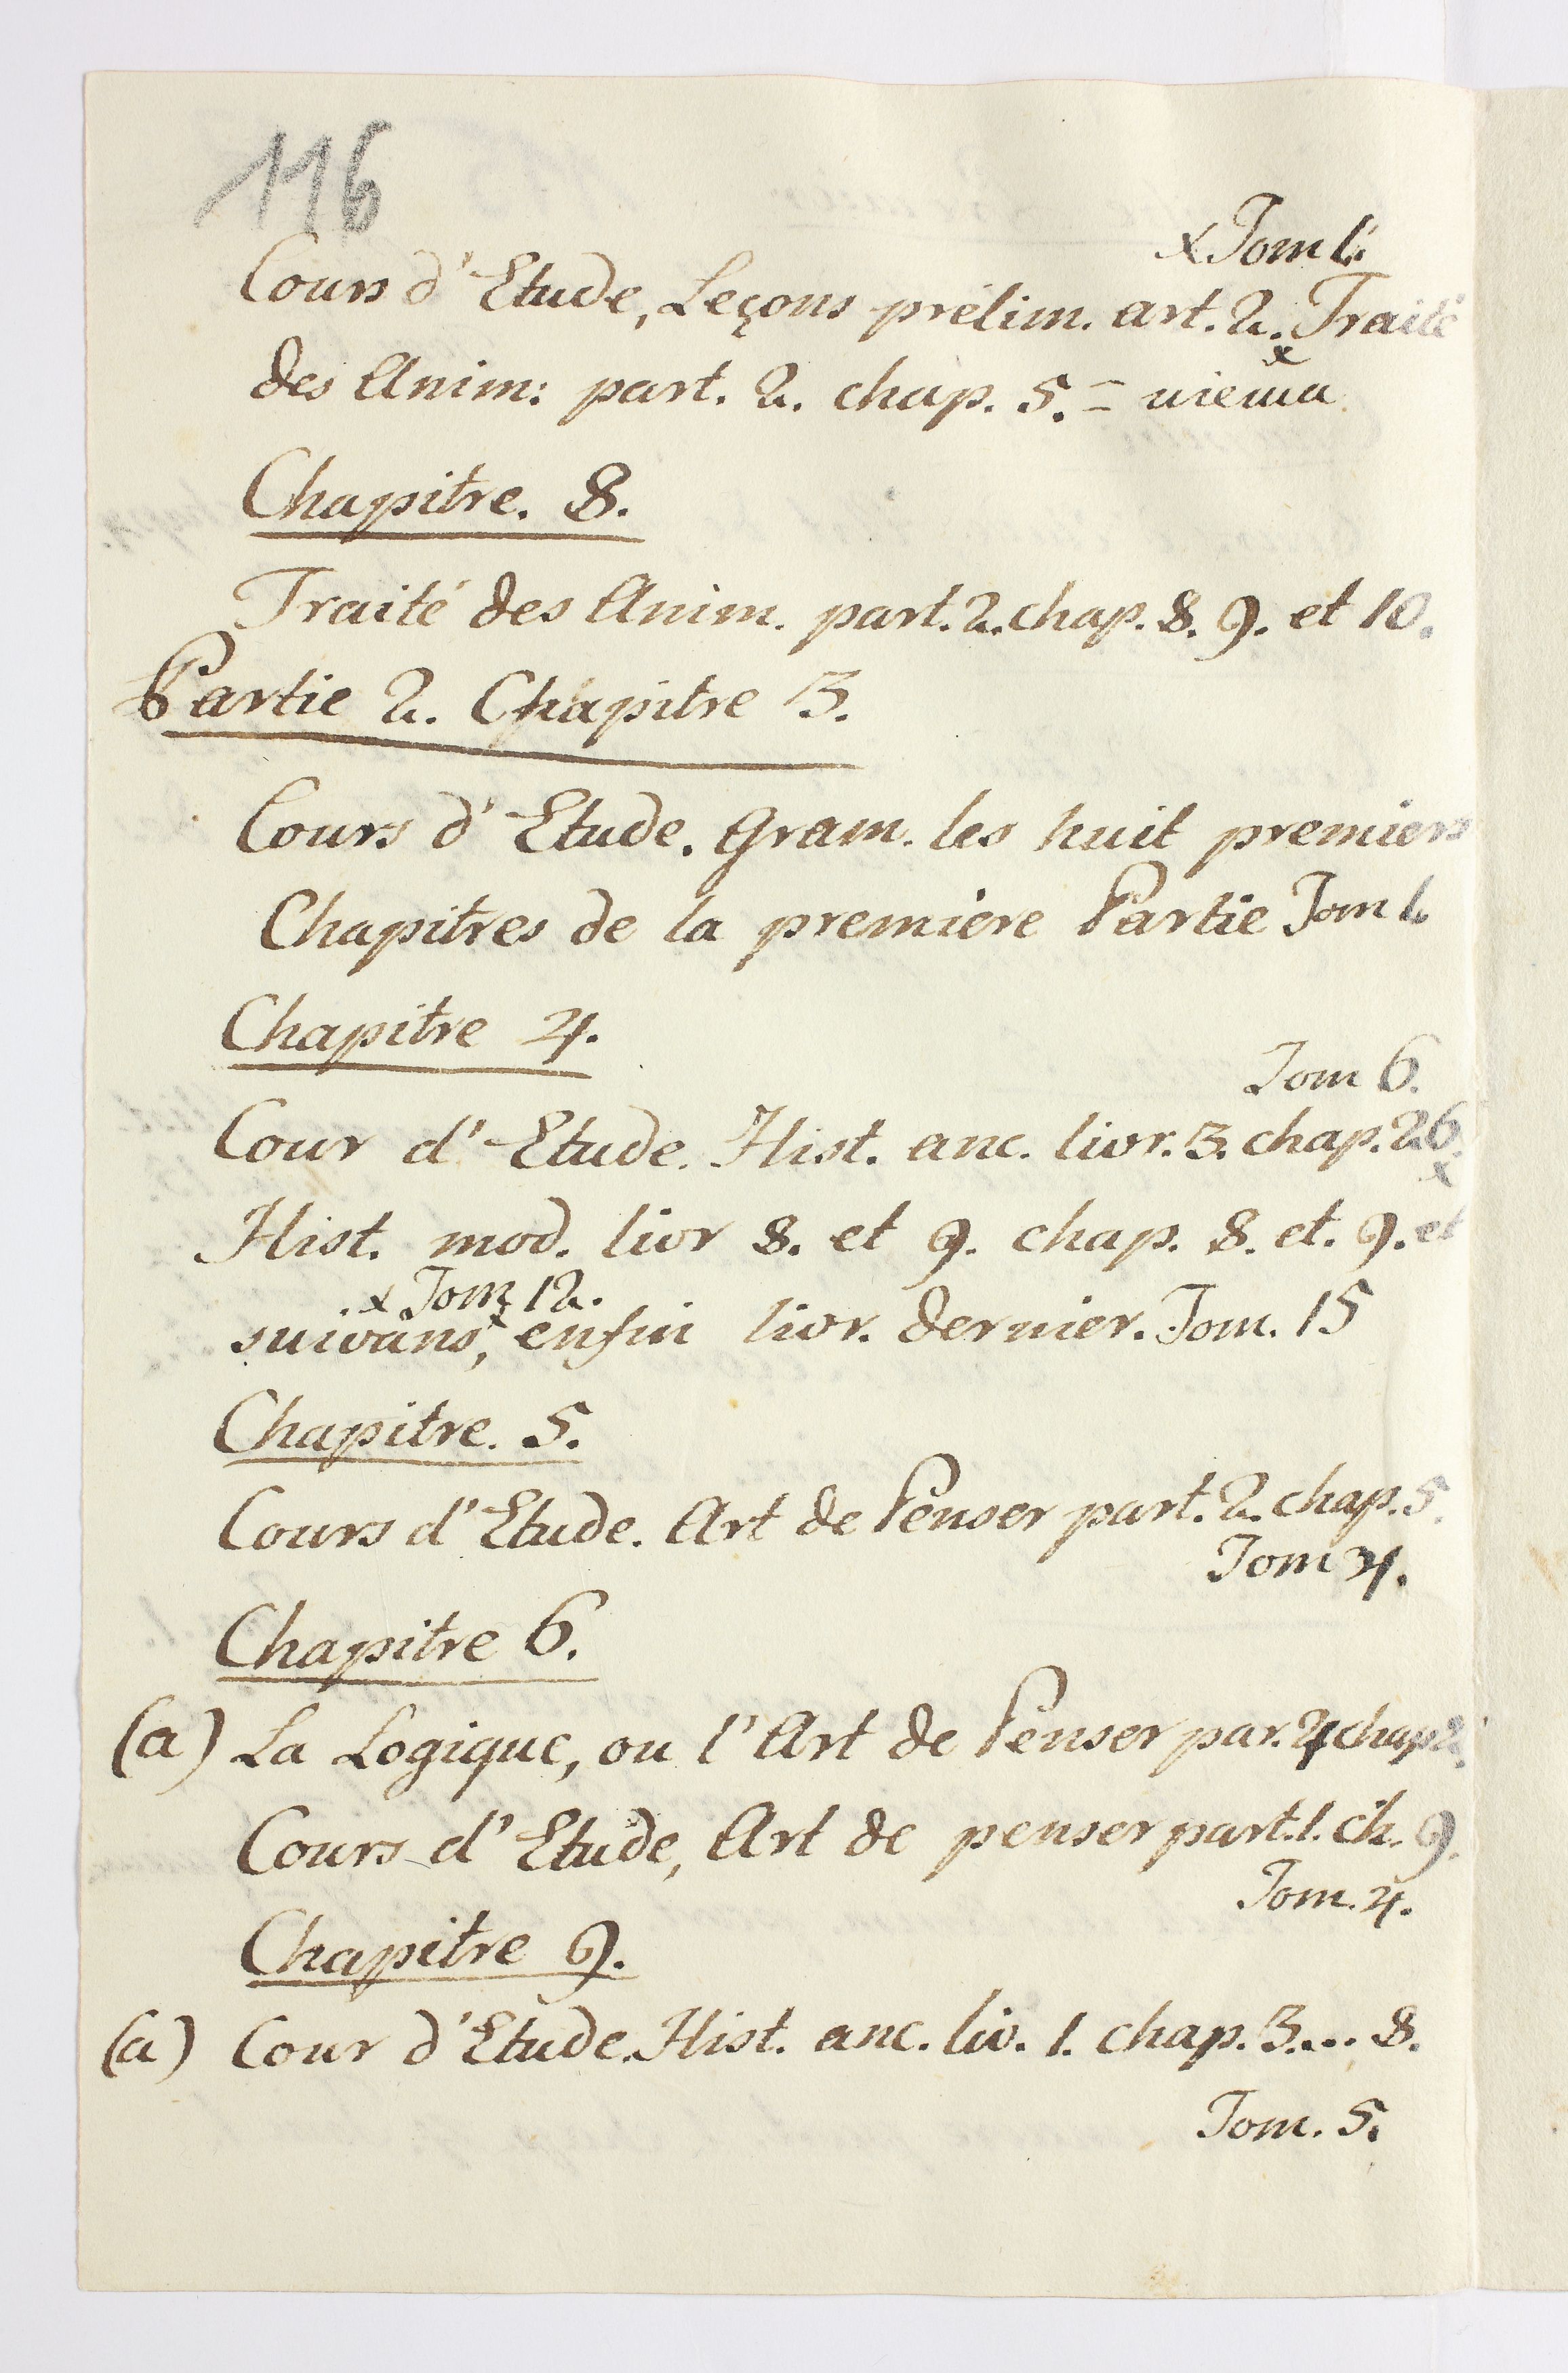 116
x Tom 1.
Cours d'Etude, Leçons prélim. art. 2. x Traité
des Anim: part. 2. chap. 5. = niema
Chapitre. 8.
Traité des Anim. part. 2. chap. 8. 9. et 10.
Partie 2. Chapitre 3.
Cours d'Etude. Gram. les huit premiers
Chapitres de la premiere Partie Tom 1.
Chapitre 4.
Tom 6.
Cour d'Etude. Hist. anc. livr. 3. chap. 26. x
Hist. mod. livr 8. et 9. chap. 8. et. 9. et
x Tom 12.
suivans, x enfin livr. dernier. Tom. 15
Chapitre. 5.
Cours d'Etude. Art de Penser part. 2. chap. 5.
Tom 4.
Chapitre 6.
(a) La Logique, ou l'Art de Penser par. 4 chap 2.
Cours d'Etude, Art de penser part. 1. ch. 9.
Tom. 4.
Chapitre 9.
(a) Cour d'Etude. Hist. anc. liv. 1. chap. 3... 8.
Tom. 5.